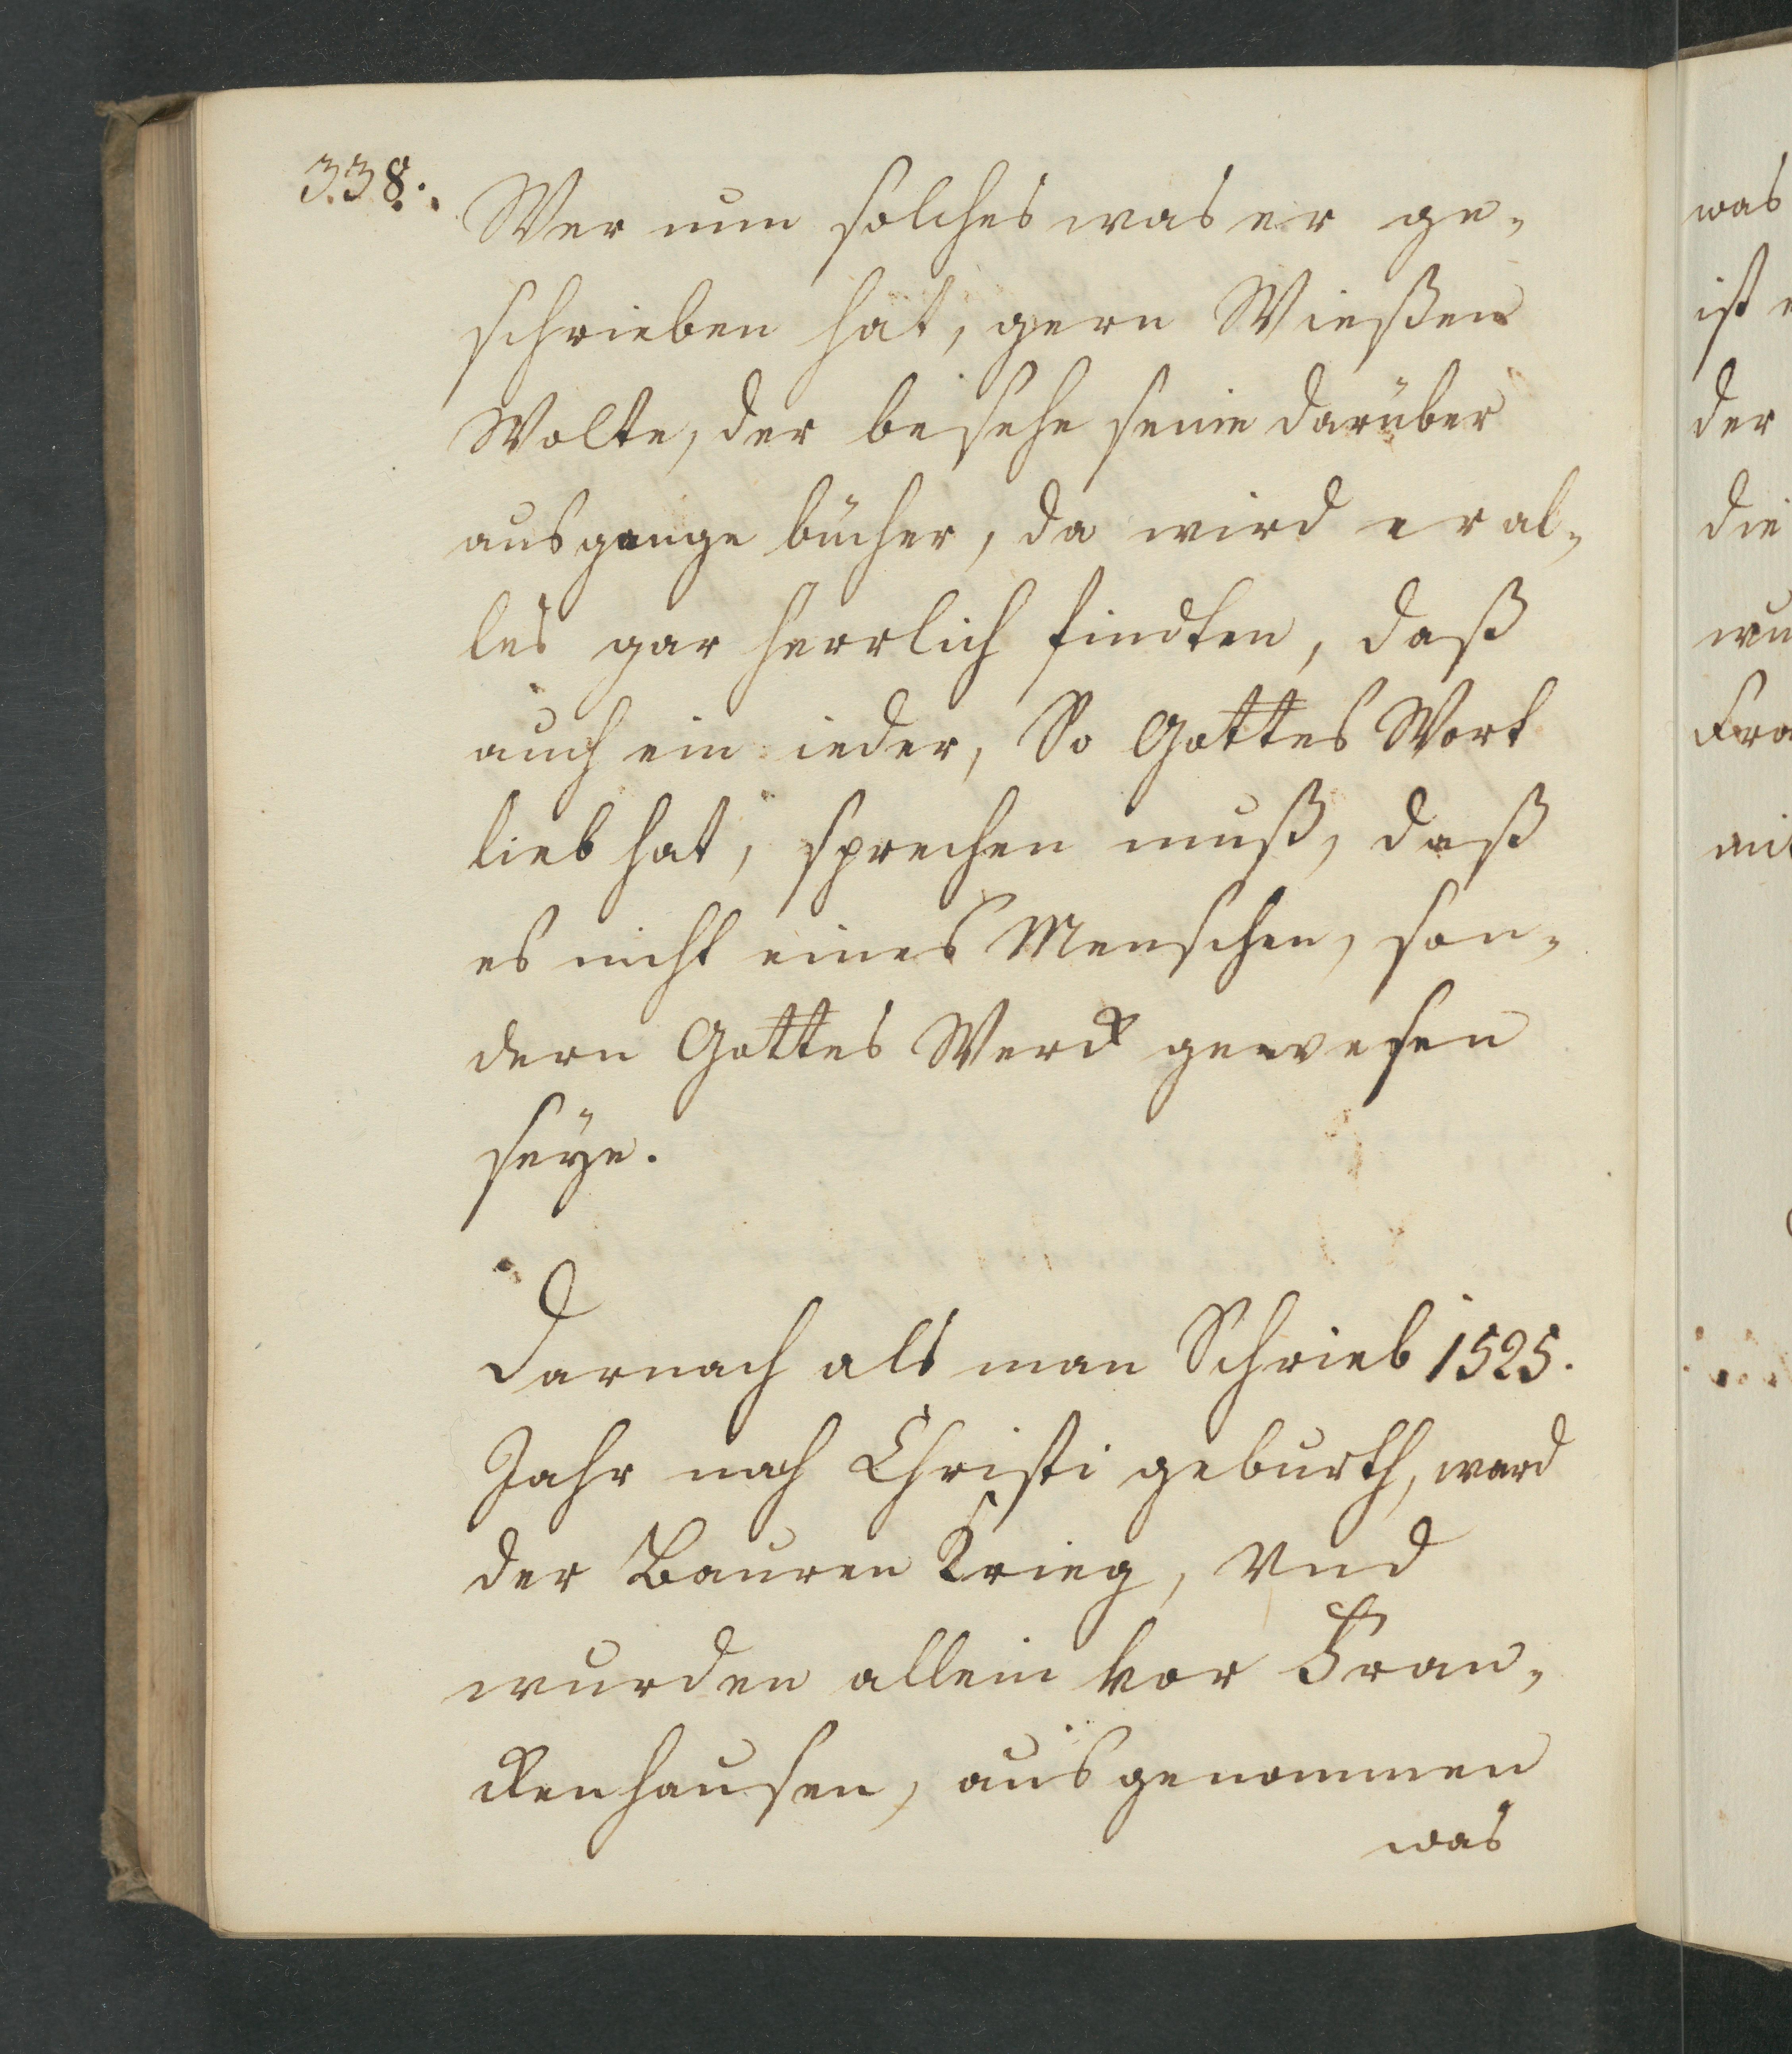 338.
Wer nun solches was er ge-
schrieben hat, gern Wießen
Wolte, der besehe seine darüber
ausgange bücher, da wird er al-
les gar herrlich findten, daß
auch ein ieder, So Gottes Wort
lieb hat, sprechen muß, daß
es nicht eines Menschen, son-
dern Gottes Werck gewesen
seÿe.
Darnach als man Schrieb 1525.
Jahr nach Christi geburth, ward
der Bauren Krieg, Vnd
wurden allein vor Fran-
ckenhausen, ausgenommen
was
was
ist
der
die
wu
Fra
mit